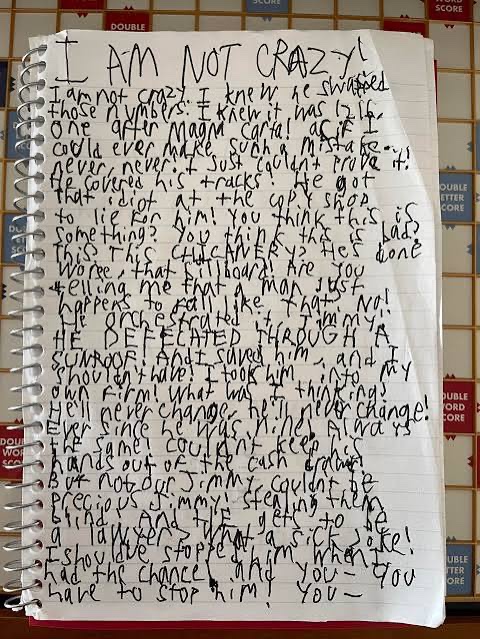 WORD
SCORE
DOUBLE
WORD
SCORE
I AM NOT CRAZY!
I am not crazy I knew he swapped
those numbers! I knew it was 1216.
one after Magna Carta! as if I
could ever make such a mistake.
never, never. I just couldn't prove it!
He covered his tracks! He got
that idiot at the copy shop
to lie for him! you think this is
something? you think this is bad?
This? This CHICANERY? He's done
worse, that billboard! Are you
telling me that a man just
happens to fall like that? No!
He orchestrated it! Jimmy!
HE DEFECATED THROUGH A
SUNROOF! And I saved him, and I
shouldn't have! I took him into my
own firm! What was I thinking?
He'll never change, he'll never change!
Ever since he was nine! Always
the same! Couldn't keep his
hands out of the cash drawer!
But not our Jimmy! Couldn't be
precious Jimmy! Stealing them
blind! And HE gets to be
a lawyer? What a sick joke!
I should've stopped him when I
had the chance! and you- you
have to stop him! you-
DOUBLE
LETTER
SCORE
DOUBLE
WORD
SCORE
DOUBLE
WORD
DOUBLE
LETTER
SCORE